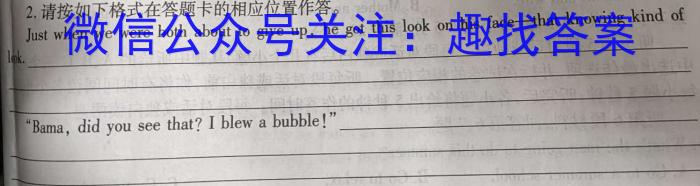 2. 请按如下格式在答题卡的相应位置作答。
Just when we were both about to give up, he got this look on his face—that knowing kind of
look.
微信公众号关注：趣找答案
“Bama, did you see that? I blew a bubble!”